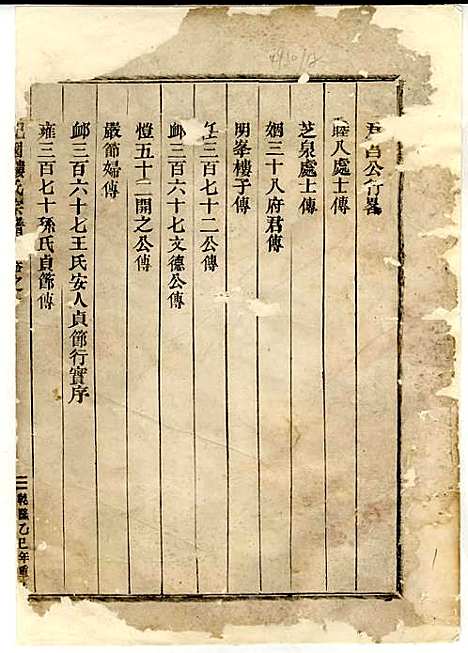 公行畧
睦八處士傳
芝泉處士傳
姻三十八府君傳
明峯樓子傳
三百七十二公傳
邮三百六十七文德公傳
愷五十二開之公傳
嚴節婦傳
邮三百六十七王氏安人貞節行實序
雍三百七十孫氏貞節傳
國樓氏宗譜
乾隆乙巳年重